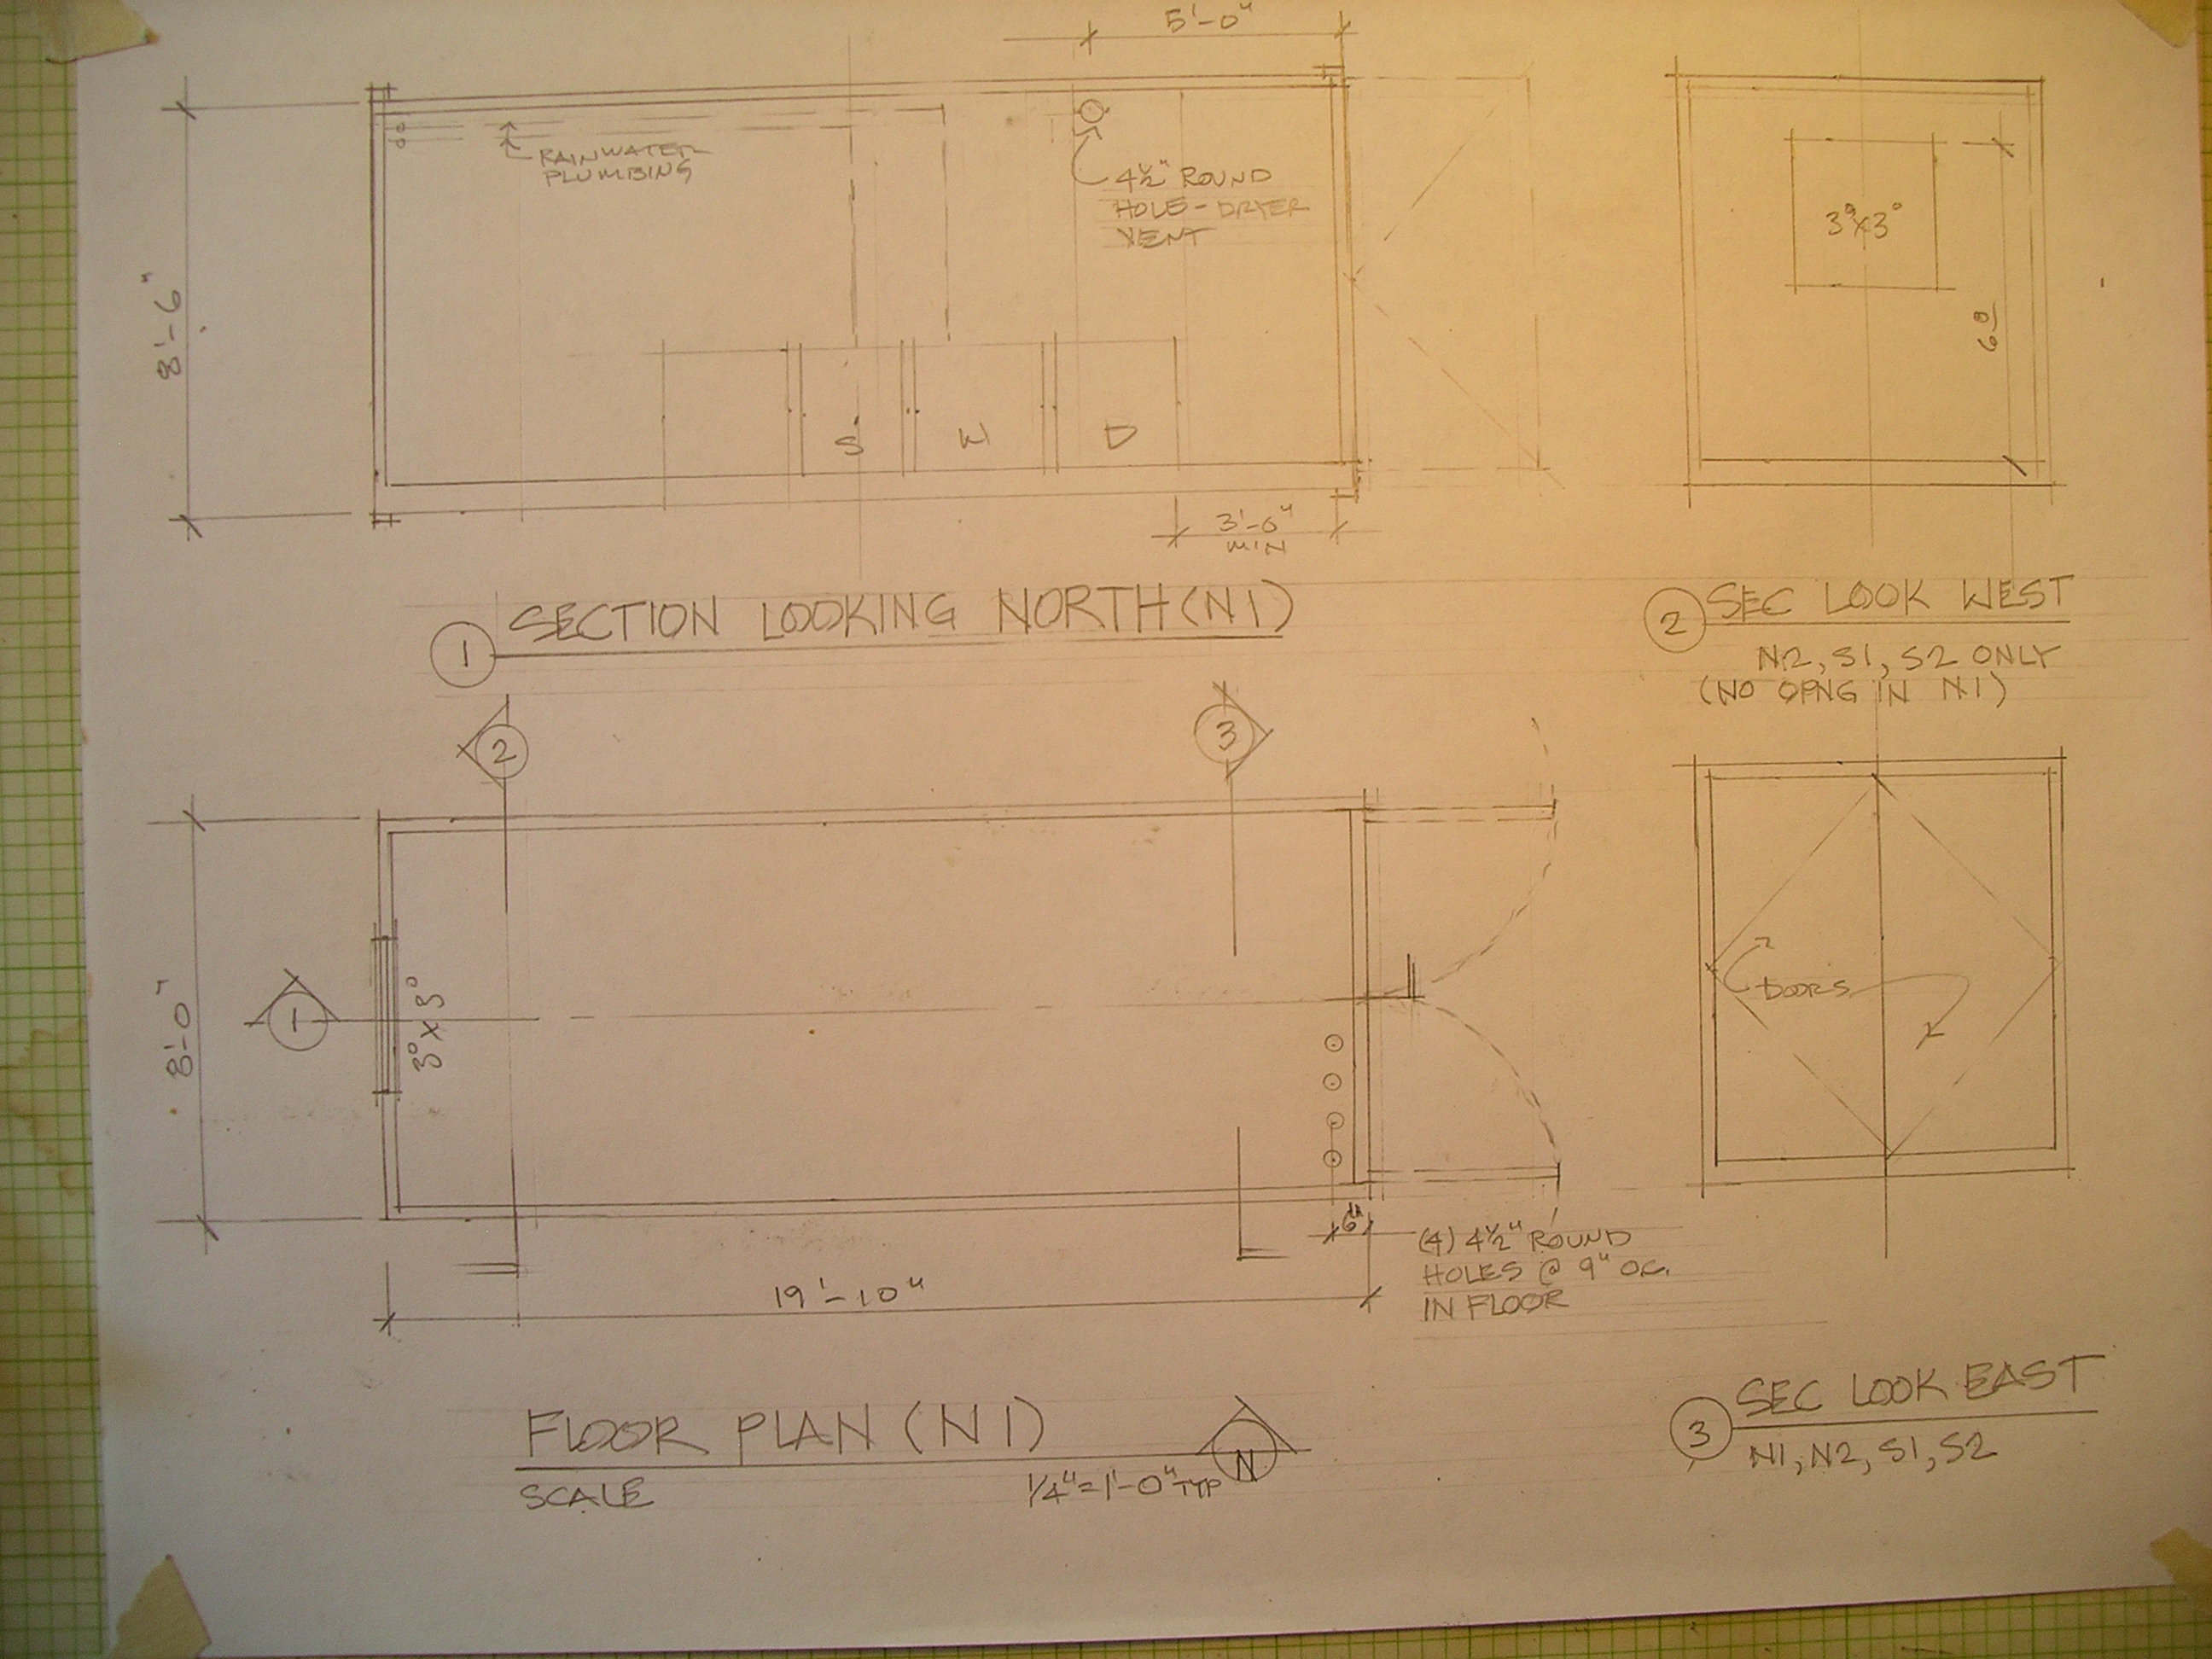 5'-0"
RAINWATER
PLUMBING
4½" ROUND
HOLE - DRYER
VENT
8'-6"
S W D
3'-0"
MIN
1 SECTION LOOKING NORTH (N1)
3⁰x3⁰
6⁰
2 SEC LOOK WEST
N2, S1, S2 ONLY
(NO OPNG IN N1)
2
3
1
8'-0"
3⁰x3⁰
6"
(4) 4½" ROUND
HOLES @ 9" OC.
IN FLOOR
19'-10"
FLOOR PLAN (N1)
SCALE 1/4"=1'-0" TYP
N
DOORS
3 SEC LOOK EAST
N1, N2, S1, S2